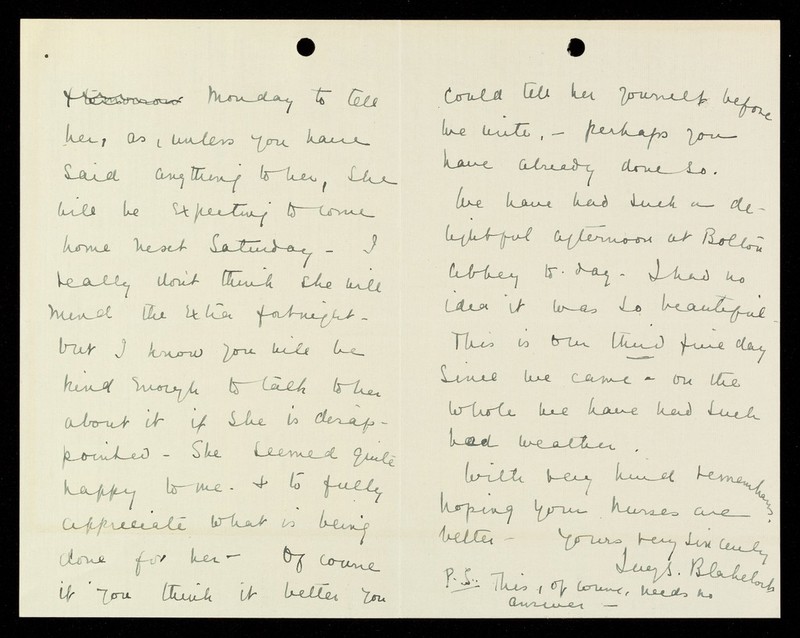 & ~~tomorrow~~ Monday to tell
her, as, unless you have
said anything to her, she
will be expecting to come
home next Saturday - I
really don't think she will
mind the extra fortnight -
but I know you will be
kind enough to talk to her
about it if she is disap-
pointed - She seemed quite
happy to me - & to fully
appreciate what is being
done for her - Of course
if you think it better you
could tell her yourself before
we write, - perhaps you
have already done so.
We have had such a de-
lightful afternoon at Bolton
Abbey to-day - I had no
idea it was so beautiful.
This is our third fine day
since we came - on the
whole we have had such
bad weather.
With very kind remembrances,
hoping your nurses are
better - Yours very sincerely
Lucy S. Blakelock
P.S. This, of course, needs no
answer -